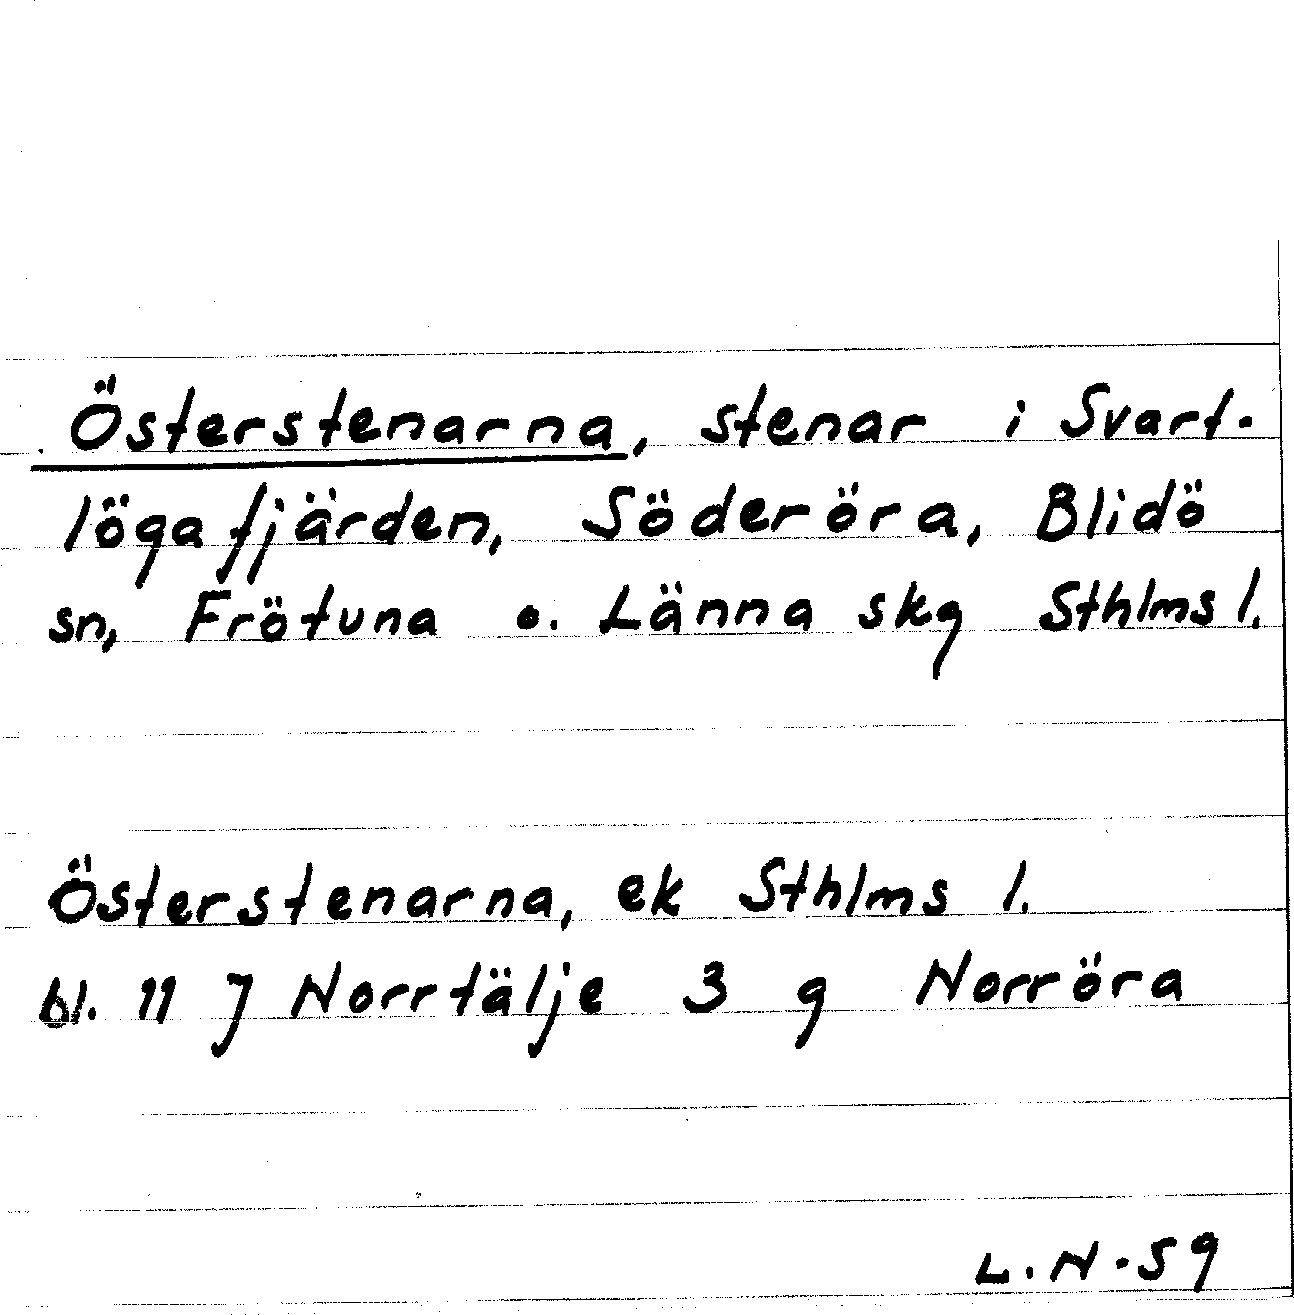 Österstenarna, stenar i Svart-
lögafjärden, Söderöra, Blidö
sn, Frötuna o. Länna skg Sthlms l.
Österstenarna, ek Sthlms l.
bl. 11 J Norrtälje 3 g Norröra
L.N.59